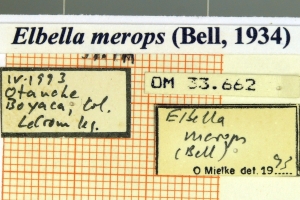 Elbella merops (Bell, 1934)
IV.1993
Otanche
Boyaca, Col.
leg.
OM 33.662
Elbella
merops
(Bell)
O Mielke det. 19.... 95